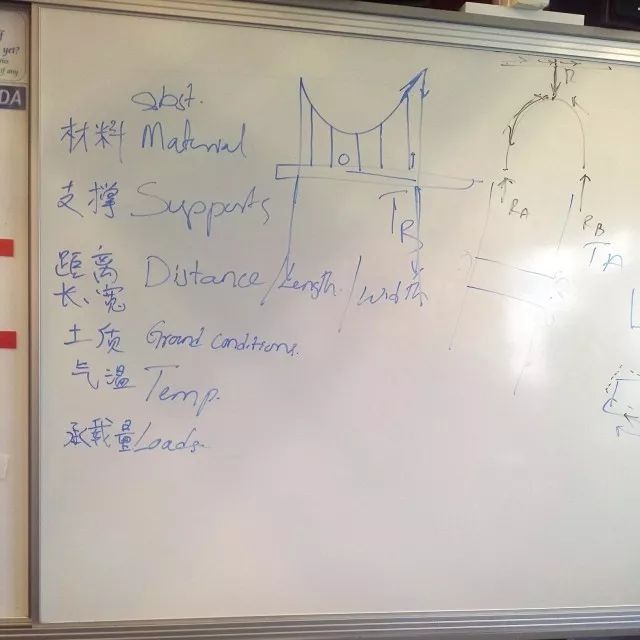 材料 Material
支撑 Supports
距离 Distance/Length/Width
长、宽
土质 Ground conditions.
气温 Temp.
承载量Loads.
R
RA
RB
DA